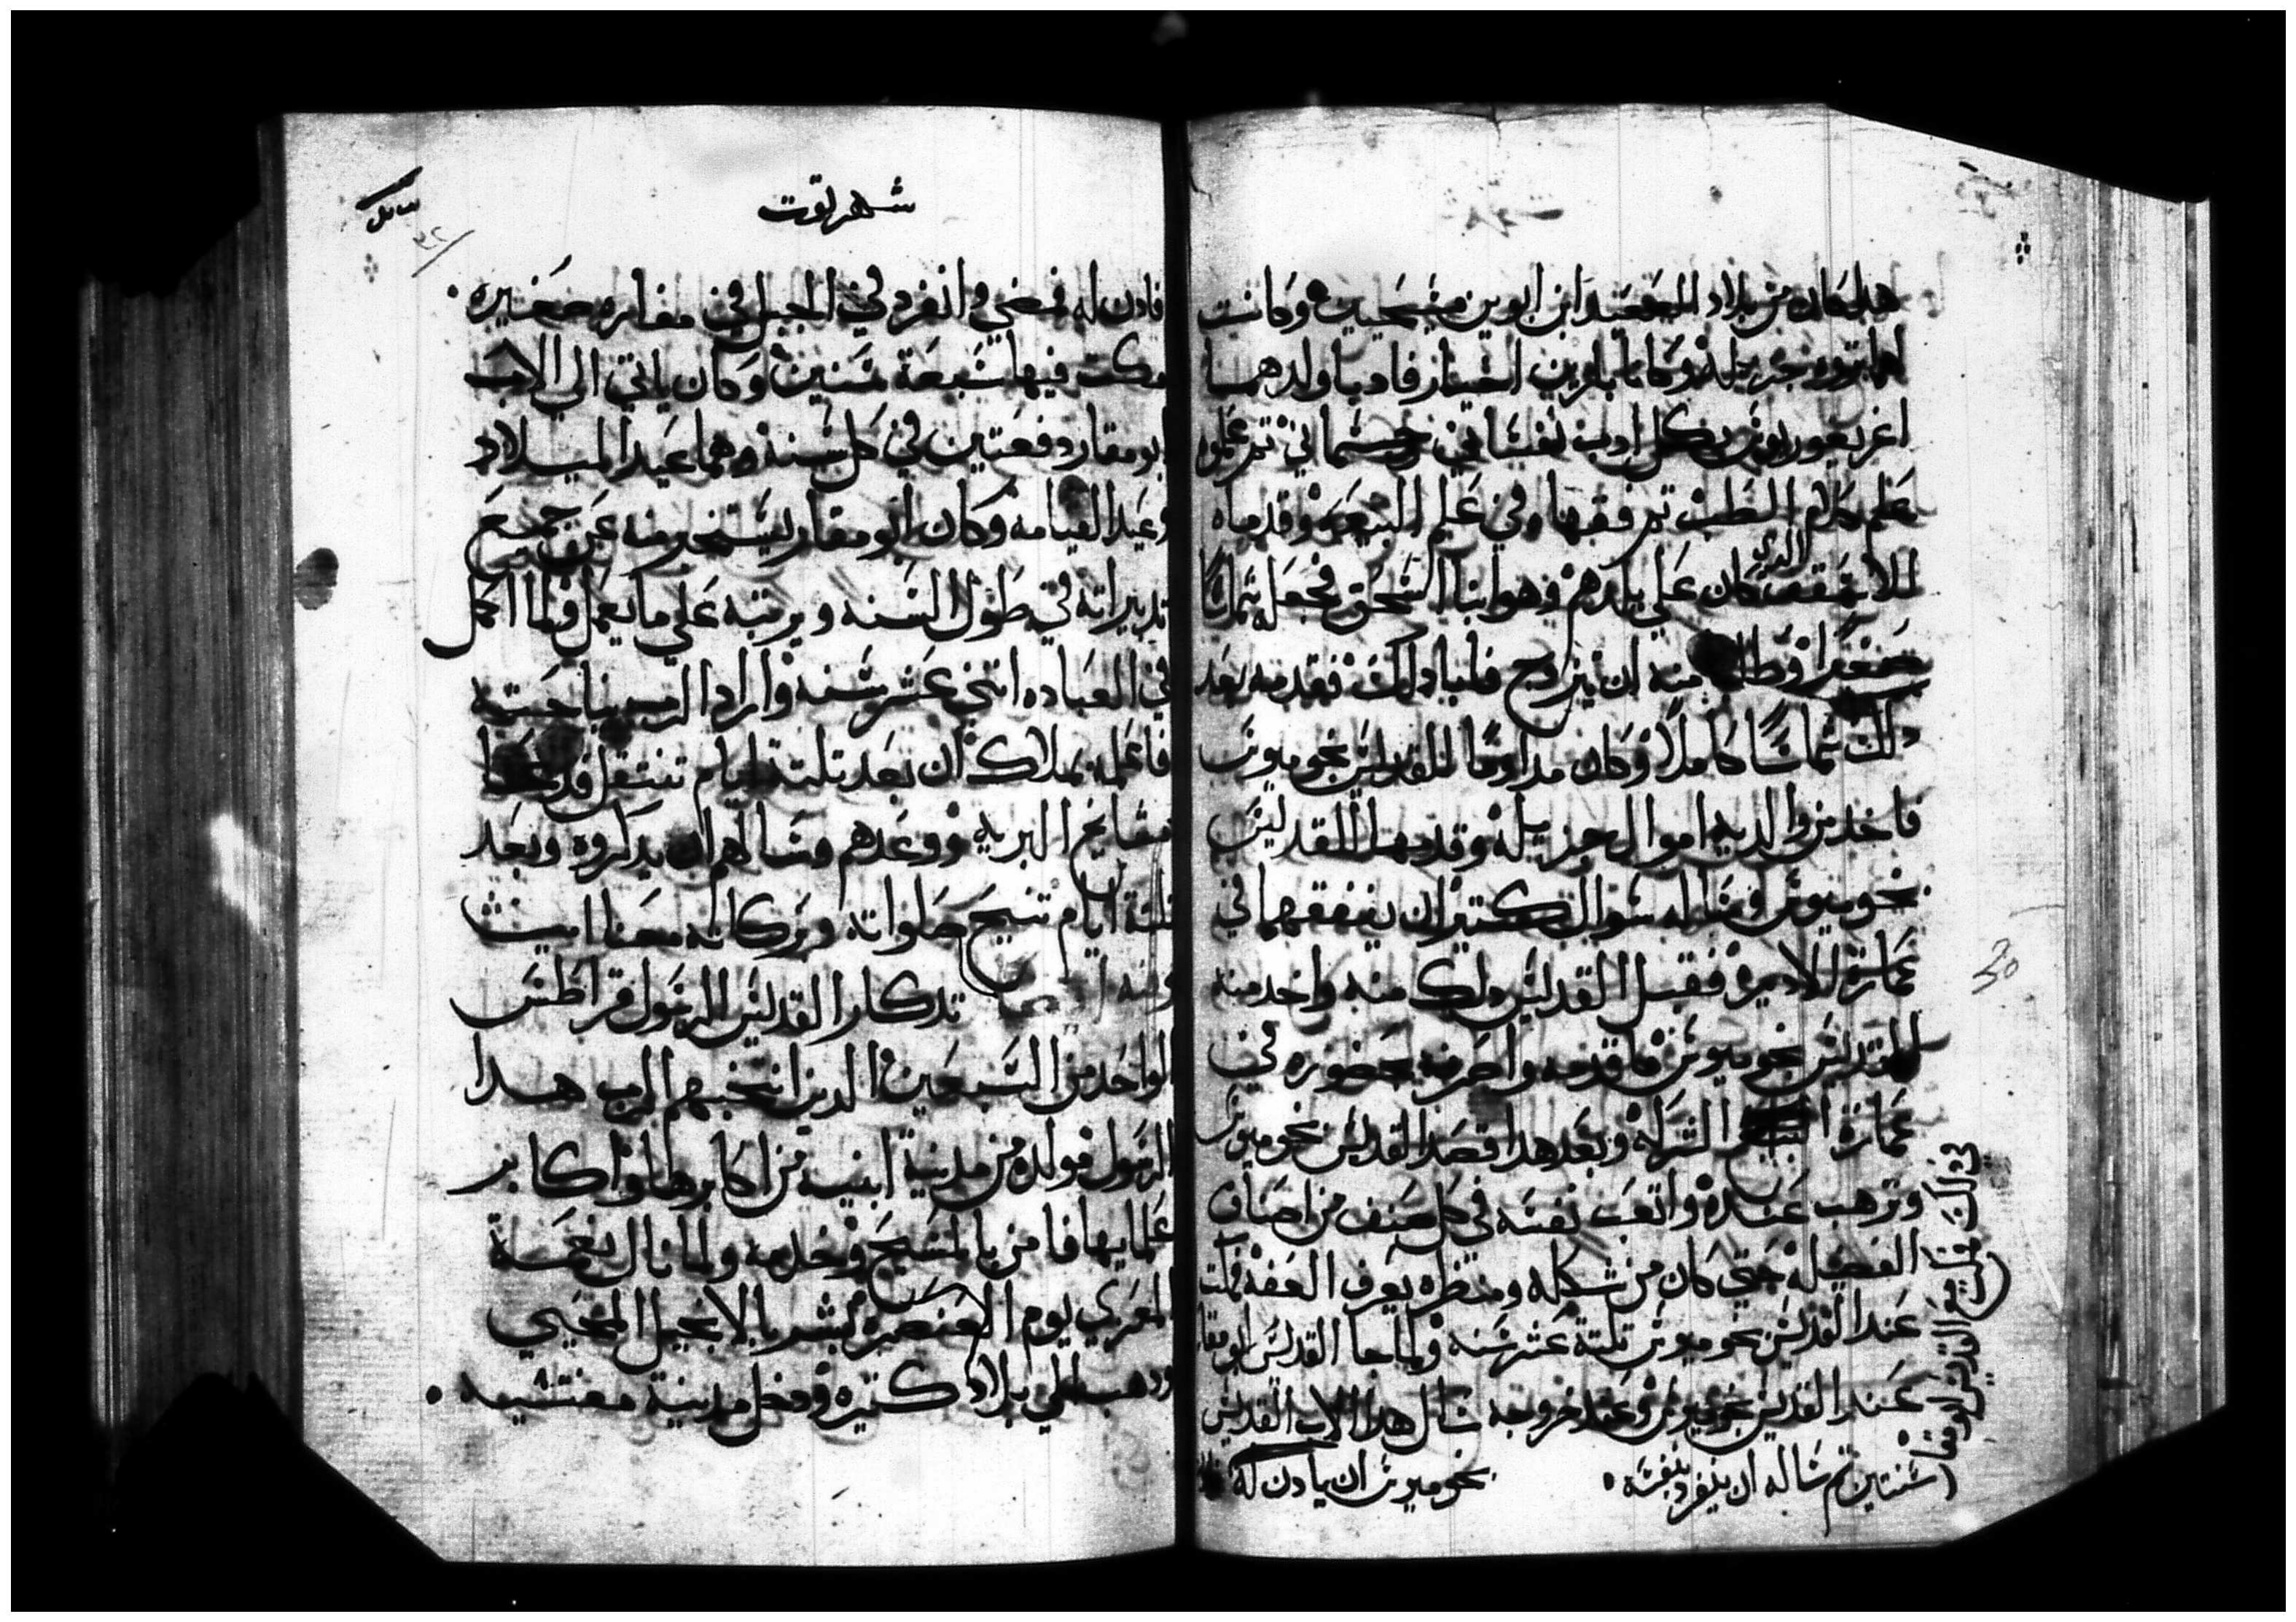 هدا كان من بلاد الصعيد ابن ابوين مسيحيين وكانت
لهما تروه جزيله وكانا بارين اخيار فادبا ولدهما
اغريغوريوس بكل ادب نفساني وجسماني تم علموه
علم كلام الطب تم فقهاه في علم البيعه وقدماه
للاسقف الدي كان على بلدهم وهو انبا اسحق فجعله شماسًا
صغيرا وطلب منه ان يتزوج فلم يشا دلك فقدمه بعد
دلك شماسًا كاملًا وكان مداومًا للقديس بخوميوس
فاخد من والديه اموال جزيله وقدمها للقديس
بخوميوس وساله سوال كتير ان ينفقها في
عمارة الاديره فقبل القديس دلك منه واخد منه
القديس بخوميوس ما قدمه واصرفه بحضوره في
عمارة الشركه وبعد هدا قصد القديس بخوميوس
وترهب عنده واتعب نفسه في كل صنف من اصناف
الفضيله حتى كان من شكله ومنظره يعرف العفه فمكت
عند القديس بخوميوس تلتة عشر سنه ولما جا القديس ابو مقار
عند القديس بخوميوس وعند خروجه سال هدا الاب القديس
بخوميوس ان يادن له
في دلك فمكت مع القديس ابو مقار
سنتين تم ساله ان ينفرد بنفسه
شهر توت
فادن له فمضي وانفرد في الجبل في مغاره صغيره
مكت فيها سبعة سنين وكان ياتي الى الاب
ابو مقار دفعتين في كل سنه وهما عيد الميلاد
وعيد القيامه وكان ابو مقار يستخبر منه عن جميع
تدبيراته في طول السنه ويرتبه على ما يعمل ولما اكمل
في العباده اتني عشر سنه واراد الرب نياحته
فاعلمه بملاك ان بعد تلتة ايام تنتقل فدعا
مشايخ البريه وودعهم وسالهم ان يدكروه وبعد
تلتة ايام تنيح صلواته وبركاته معنا امين
وفيه ايضا تدكار القديس الرسول قراطس
الواحد من السبعين الدين انتخبهم الرب هدا
الرسول مولده من مدينة اتنيه من اكابرها واكابر
علمايها فامن بالمسيح وخدمه ولما نال نعمة
المعزي يوم العنصره بشر بالانجيل المحيي
ودهب الى بلاد كتيره ودخل مدينة مغنسيه